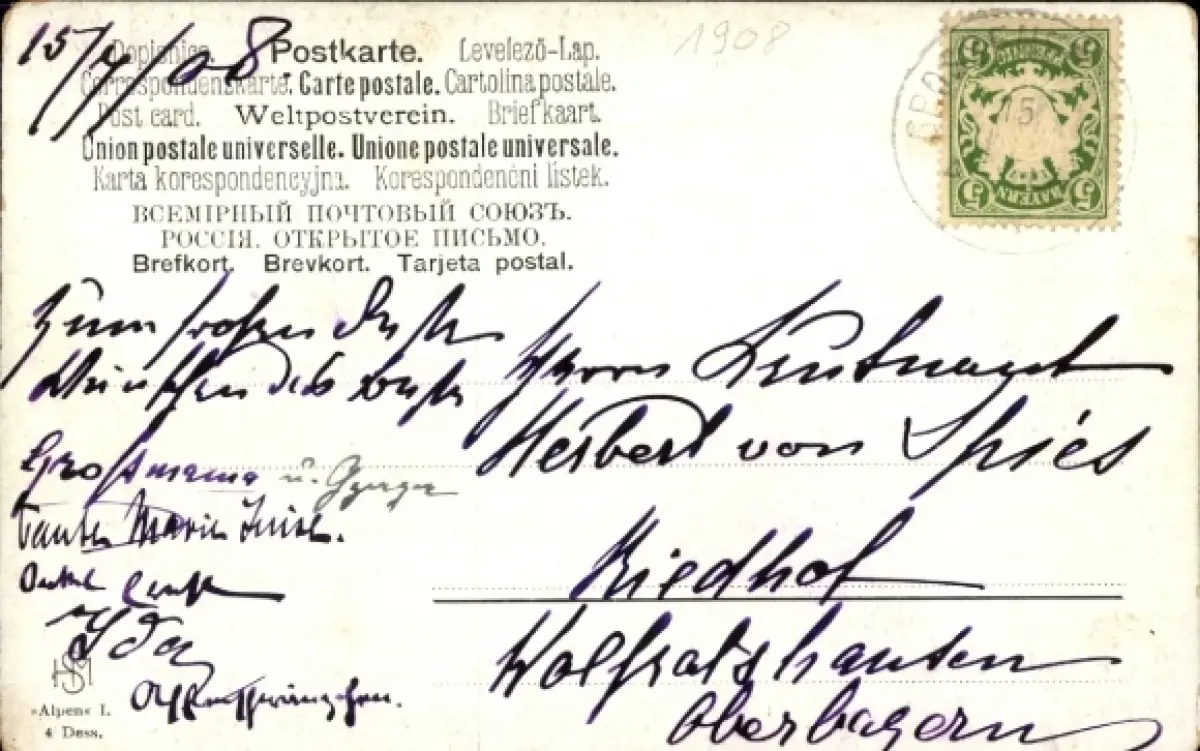 15/4/08
1908
Dopisnice. Postkarte. Levelező-Lap.
Correspondenzkarte. Carte postale. Cartolina postale.
Post card. Weltpostverein. Briefkaart.
Union postale universelle. Unione postale universale.
Karta korespondencyjna. Korespondenčni listek.
ВСЕМІРНЫЙ ПОЧТОВЫЙ СОЮЗЪ.
РОССІЯ. ОТКРЫТОЕ ПИСЬМО.
Brefkort. Brevkort. Tarjeta postal.
5 5
15
BAYERN
5 5
Zum frohen Feste
Wünschen das beste
Großmama u.
Tante Marie Luise.
Onkel
Ida
Herrn Leutnant
Herbert von Spies
Riedhof
Wolfratshausen
Oberbayern
HSM
»Alpen« I.
4 Dess.